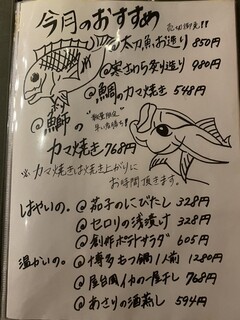 今月のおすすめ 売切御免!!
@太刀魚お造り 850円
@寒さわら炙り造り 980円
@鯛のカマ焼き 548円
@鰤の "数量限定" 早い者勝ち!
カマ焼き 768円
※カマ焼きは焼き上がりに
お時間頂きます。
はやいの。@茄子のにびたし 328円
@セロリの浅漬け 328円
@創作ポテトサラダ 605円
温かいの。@博多もつ鍋1人前 1280円
@屋台風イカの一夜干し 768円
@あさりの酒蒸し 594円